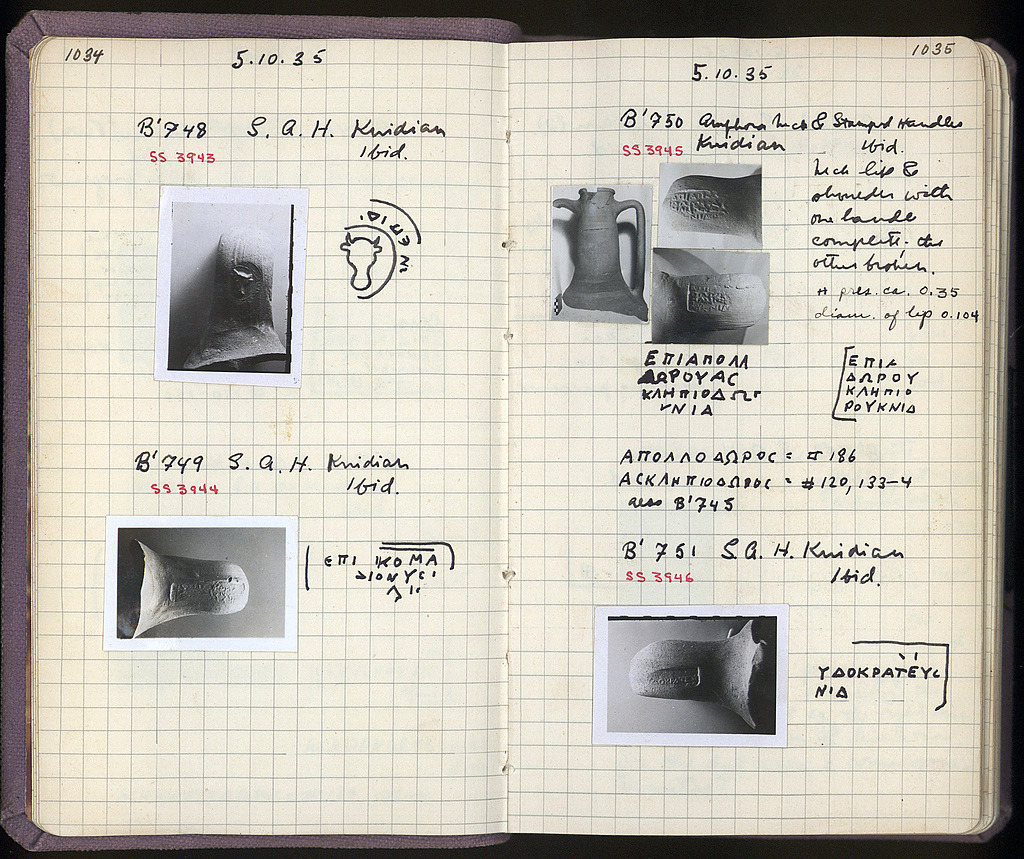 1034
5.10.35
B'748 S. A. H. Knidian
Ibid.
SS 3943
ΕΠΙΔΙ
ΝΙ
B'749 S. A. H. Knidian
Ibid.
SS 3944
ΕΠΙ ΙΚΟΜΑ
ΔΙΟΝΥΣΙ
1035
5.10.35
B'750 Amphora Neck & Stamped Handles
SS 3945 Knidian Ibid.
Neck lip &
shoulder with
one handle
complete. the
other broken.
H pres. ca. 0.35
diam. of lip 0.104
ΕΠΙΑΠΟΛΛ
ΔΩΡΟΥΑC
ΚΛΗΠΙΟΔΩ
ΝΙΔ
ΕΠΙΑ
ΔΩΡΟΥ
ΚΛΗΠΙΟ
ΡΟΥΚΝΙΔ
ΑΠΟΛΛΟΔΩΡΟC = # 186
ΑCΚΛΗΠΙΟΔΩΡΟC = # 120, 133-4
also B'745
B'751 S. A. H. Knidian
Ibid.
SS 3946
ΥΔΟΚΡΑΤΕΥC
ΝΙΔ